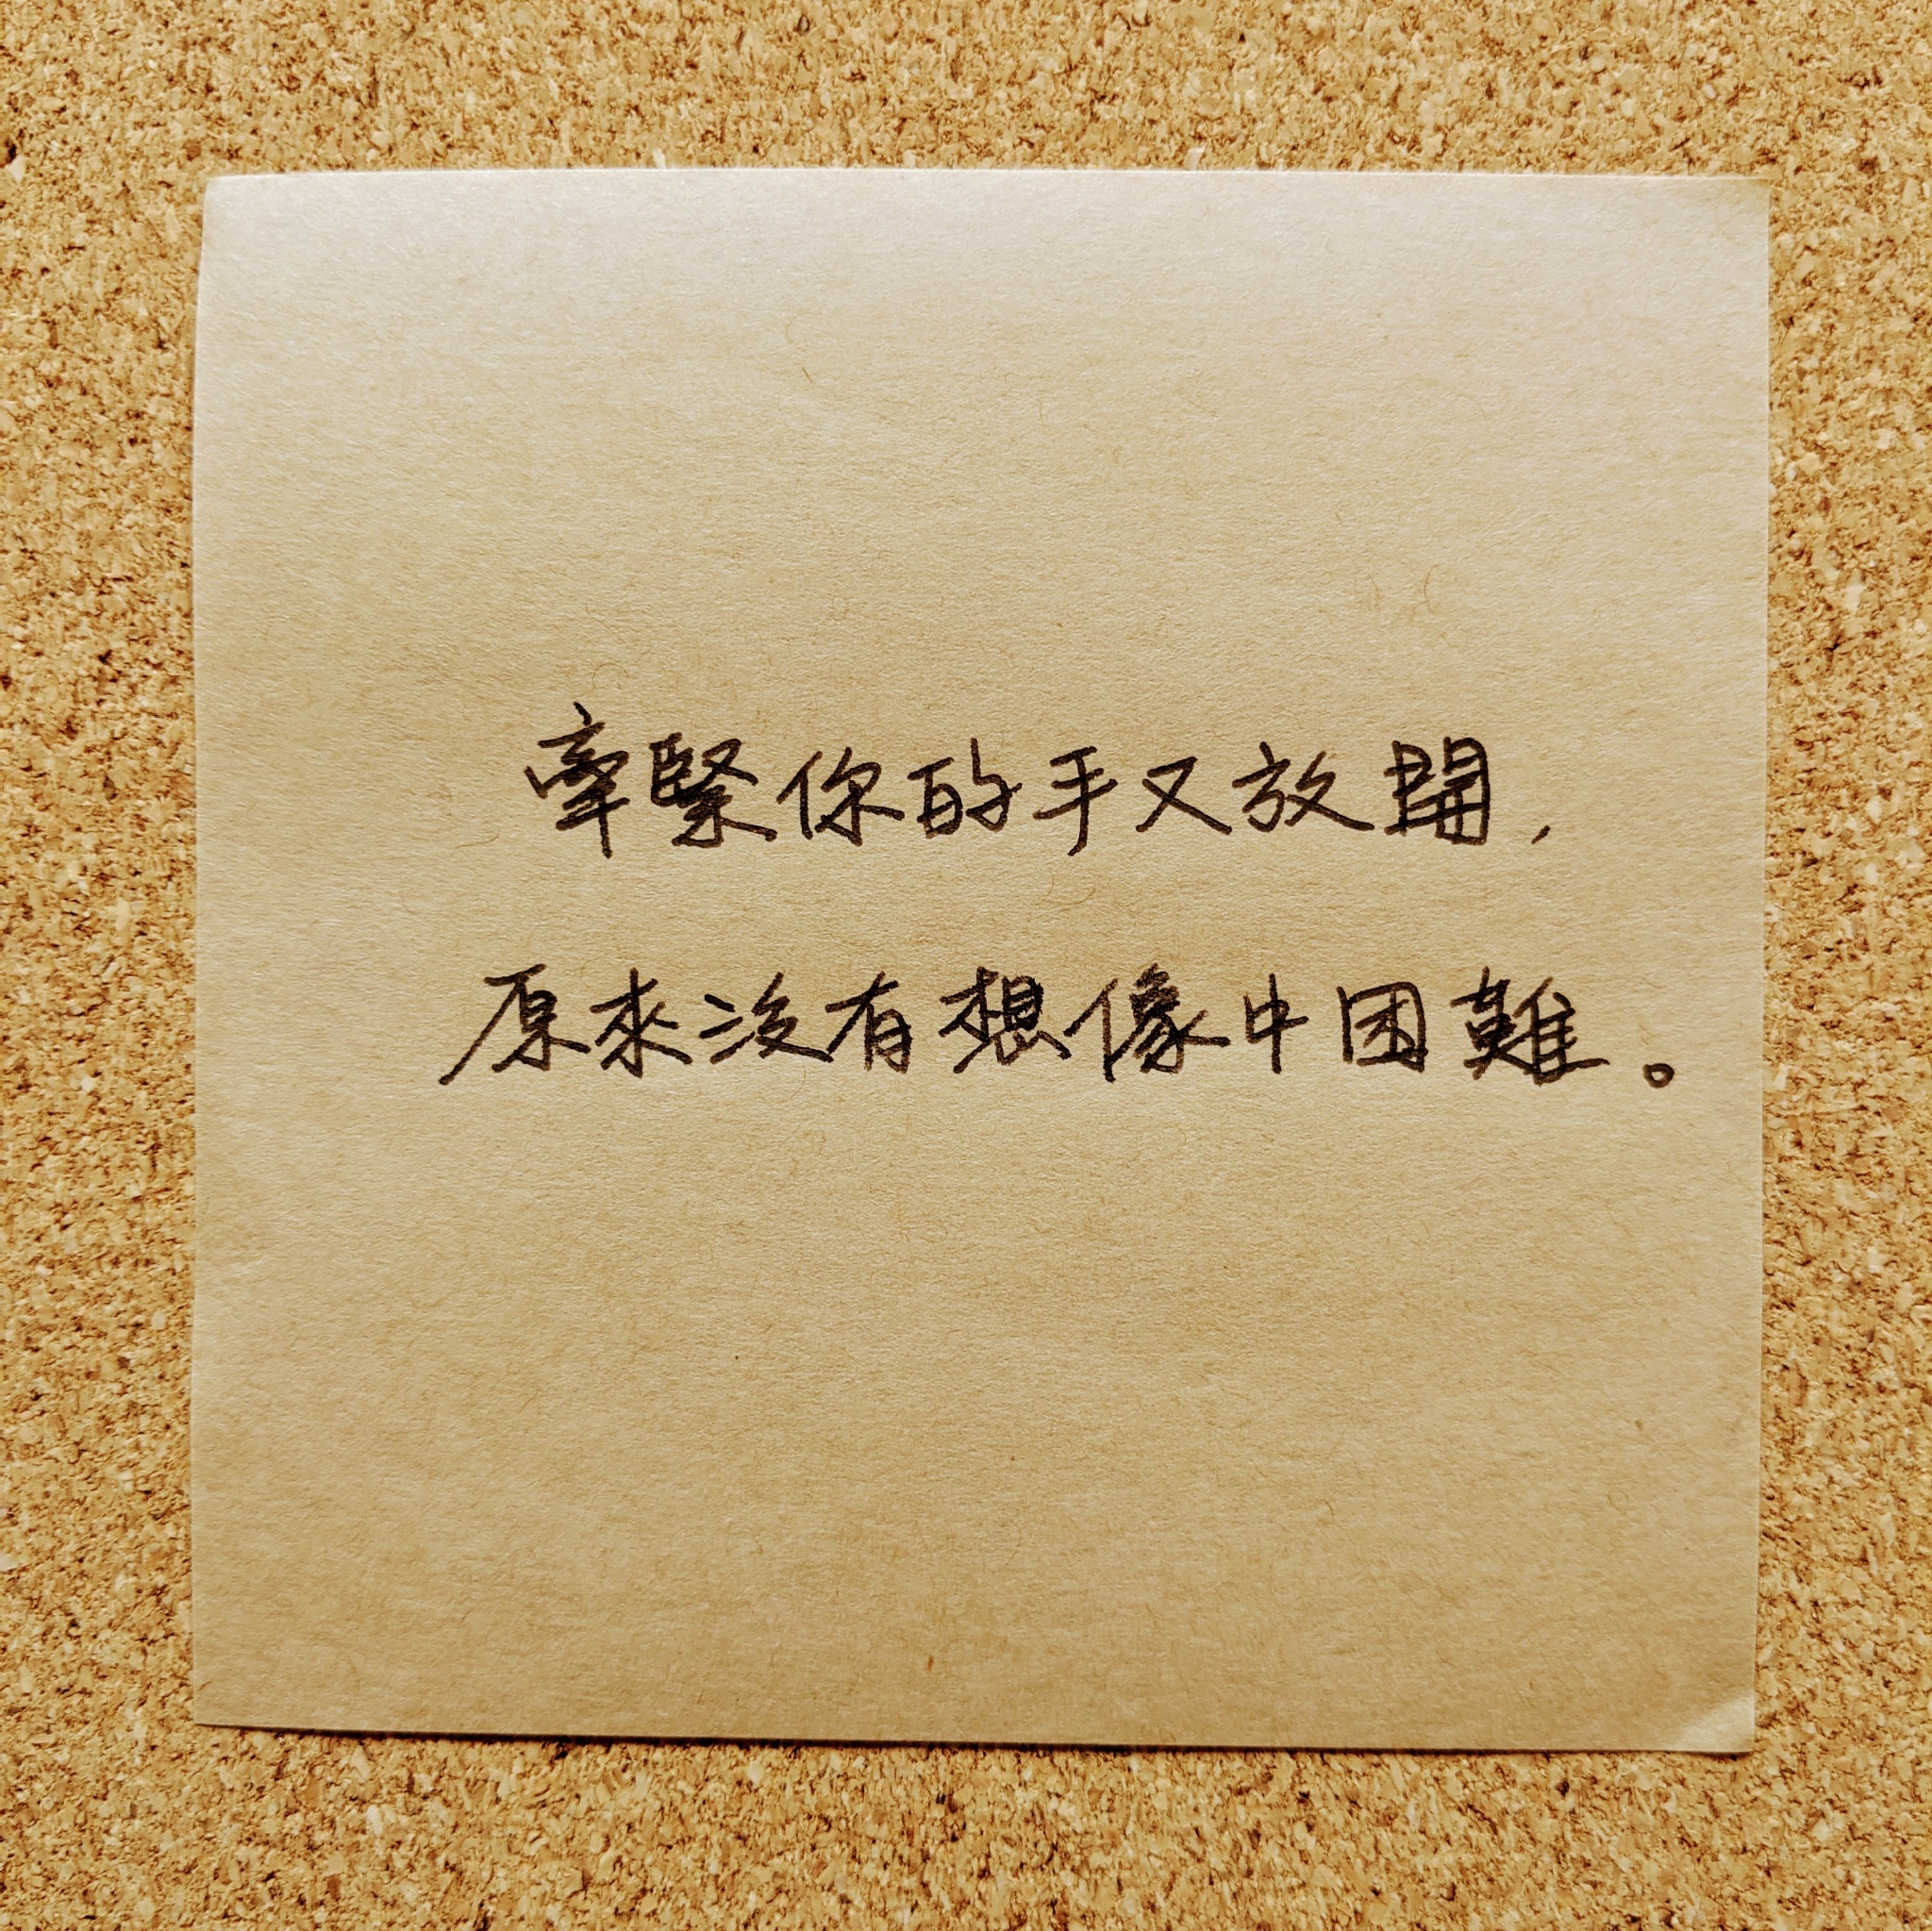 牽緊你的手又放開,
原來沒有想像中困難。